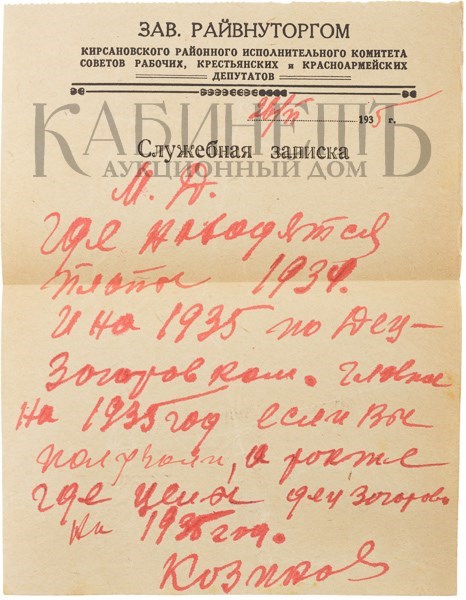 ЗАВ. РАЙВНУТОРГОМ
КИРСАНОВСКОГО РАЙОННОГО ИСПОЛНИТЕЛЬНОГО КОМИТЕТА
СОВЕТОВ РАБОЧИХ, КРЕСТЬЯНСКИХ и КРАСНОАРМЕЙСКИХ
ДЕПУТАТОВ
1935 г.
КАБИНЕТЪ
Служебная записка
АУКЦИОННЫЙ ДОМ
М. Д.
где находятся
1934.
И на 1935 по Дец-
заготовкам. главное
на 1935 год если Вы
получали, а также
где цены дец заготов.
на 1935 год.